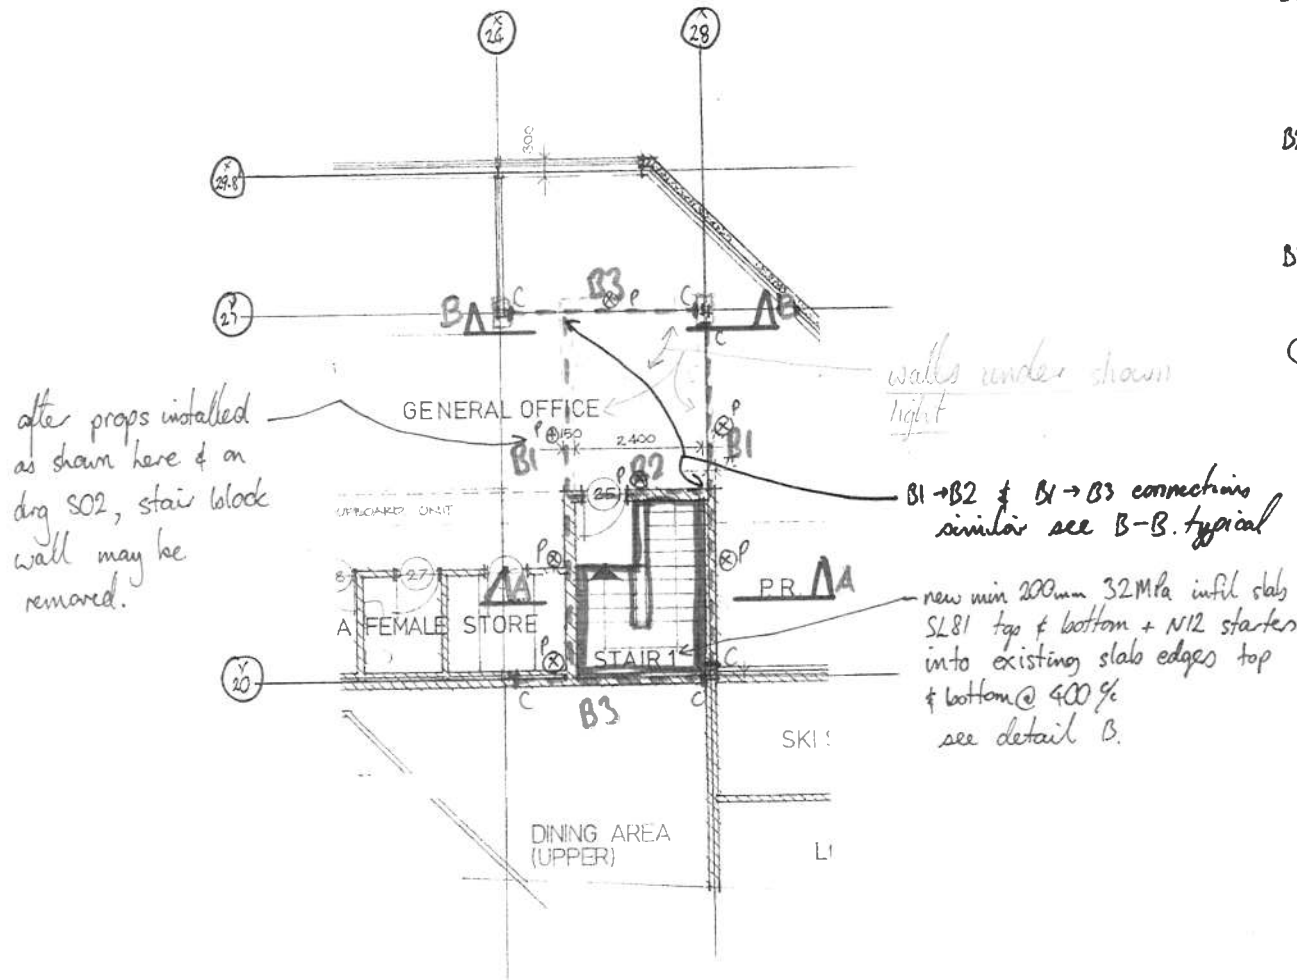 X
24
X
28
300
X
29.8
Y
27
B
C
B3
P
C
B
C
walls under shown
light
after props installed
as shown here & on
drg S02, stair block
wall may be
removed.
GENERAL OFFICE
P
150
2400
P
B1
B1
P
B2
25
UPBOARD UNIT
B1→B2 & B1→B3 connections
similar see B-B. typical
P
P
8
27
A
P.R.
A
A FEMALE STORE
new min 200mm 32MPa infil slab
SL81 top & bottom + N12 starters
into existing slab edges top
& bottom @ 400 %
see detail B.
P
STAIR 1
C
Y
20
C
B3
C
SKI S
DINING AREA
(UPPER)